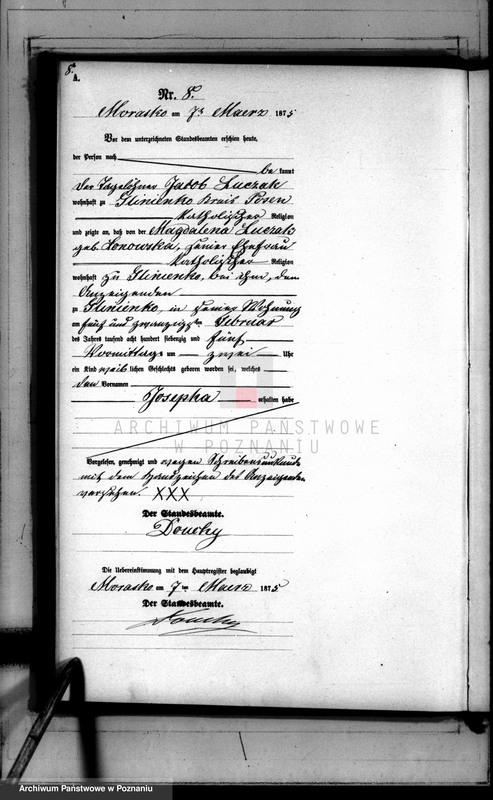 8.
A.
Nr. 8.
Morasko am 7ten Maerz 1875
Vor dem unterzeichneten Standesbeamten erschien heute,
der Person nach
bekannt
der Tagelöhner Jakob Luczak
wohnhaft zu Glinienko Kreis Posen
katholischer Religion
und zeigte an, daß von der Magdalena Luczak
geb. Nowska, seiner Ehefrau
katholischer Religion
wohnhaft zu Glinienko, bei ihm, dem
Anzeigenden
zu Glinienko, in seiner Wohnung
am fünf und zwanzigsten Februar
des Jahres tausend acht hundert siebenzig und fünf
Vormittags um zwei Uhr
ein Kind weiblichen Geschlechts geboren worden sei, welches
den Vornamen
Josepha erhalten habe
ARCHIWUM PAŃSTWOWE
W POZNANIU
Vorgelesen, genehmigt und wegen Schreibensunkunde
mit dem Handzeichen des Anzeigenden
versehen. XXX
Der Standesbeamte.
Die Uebereinstimmung mit dem Hauptregister beglaubigt
Morasko am 7ten Maerz 1875
Der Standesbeamte.
Archiwum Państwowe w Poznaniu